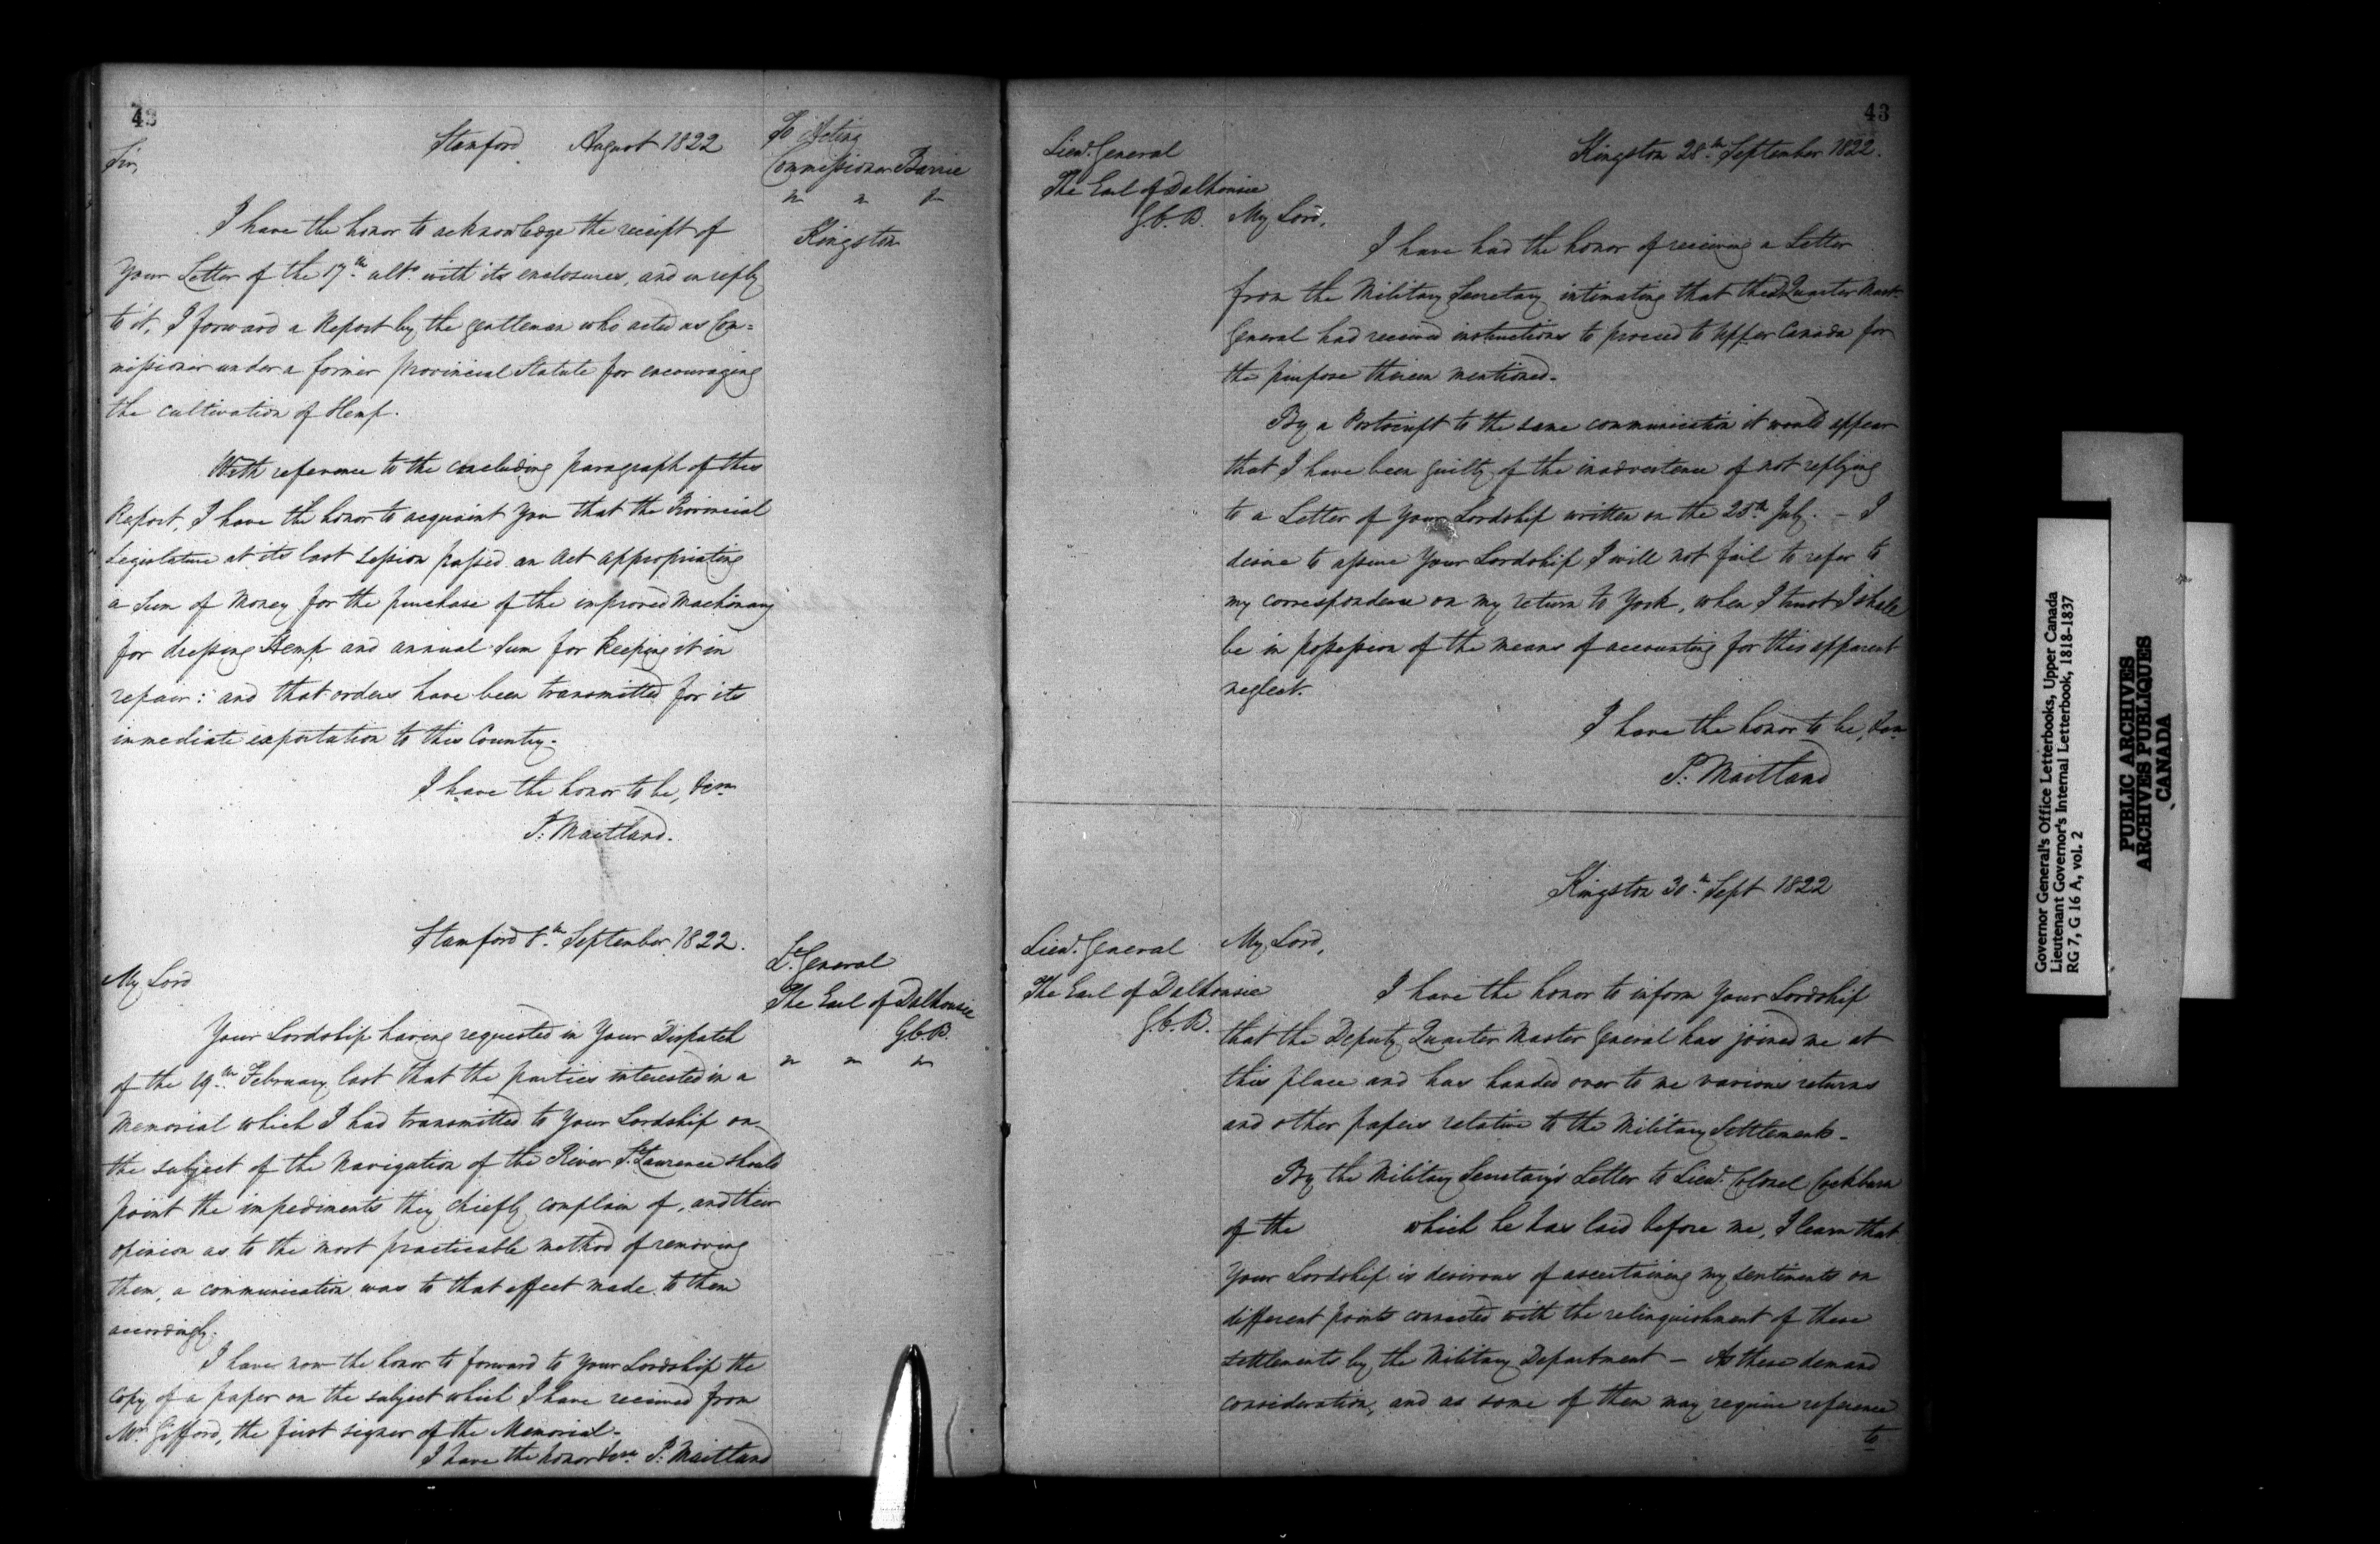 42
Stamford August 1822
To Acting
Commissioner Barrie
Kingston
Sir,
I have the honor to acknowledge the receipt of
Your Letter of the 17th ulto. with its enclosures, and in reply
to it, I forward a Report by the gentleman who acted as Com=
missioner under a former provincial Statute for encouraging
the cultivation of Hemp.
With reference to the concluding paragraph of this
Report, I have the honor to acquaint you that the Provincial
Legislature at its last session passed an Act appropriating
a Sum of Money for the purchase of the improved Machinery
for dressing Hemp and annual Sum for keeping it in
repair: and that orders have been transmitted for its
immediate exportation to this Country.
I have the honor to be, &ca
P: Maitland.
Stamford 8th September 1822.
Lt. General
The Earl of Dalhousie
G.C.B.
My Lord
Your Lordship having requested in Your Dispatch
of the 19th February last that the parties interested in a
Memorial which I had transmitted to Your Lordship on
the subject of the Navigation of the River St. Laurence should
point the impediments they chiefly complain of, and their
opinion as to the most practicable method of removing
them, a communication was to that effect made to them
accordingly.
I have now the honor to forward to Your Lordship the
Copy of a paper on the subject which I have received from
Mr. Gifford, the first signer of the Memorial.
I have the honor &ca P: Maitland
43
Kingston 28th September 1822.
Lieut. General
The Earl of Dalhousie
G.C.B.
My Lord,
I have had the honor of receiving a Letter
from the Military Secretary intimating that the Quarter Mast.
General had received instructions to proceed to Upper Canada for
the purpose therein mentioned.
By a Postscript to the same communication it would appear
that I have been guilty of the inadvertence of not replying
to a Letter of Your Lordship written on the 25th July. - I
desire to assure Your Lordship I will not fail to refer to
my correspondence on my return to York, when I trust I shall
be in possession of the means of accounting for this apparent
neglect.
I have the honor to be, &ca
P: Maitland
Kingston 30th Sept 1822
Lieut. General
The Earl of Dalhousie
G.C.B.
My Lord,
I have the honor to inform Your Lordship
that the Deputy Quarter Master General has joined me at
this place and has handed over to me various returns
and other papers relative to the Military Settlements.
By the Military Secretary's Letter to Lieut. Colonel Cockburn
of the which he has laid before me, I learn that
Your Lordship is desirous of ascertaining my sentiments on
different points connected with the relinquishment of these
settlements by the Military Department - As these demand
consideration, and as some of them may require reference
to
Governor General's Office Letterbooks, Upper Canada
Lieutenant Governor's Internal Letterbook, 1818-1837
RG 7, G 16 A, vol. 2
PUBLIC ARCHIVES
ARCHIVES PUBLIQUES
CANADA